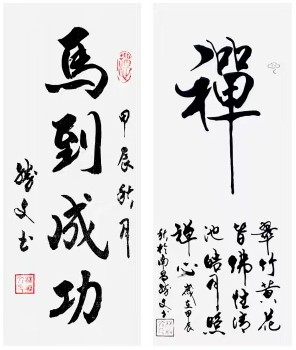 馬到成功
甲辰秋月
文书
禪
翠竹黄花
皆佛性清
池皓月照
禅心 歲在甲辰
秋於南昌 文书